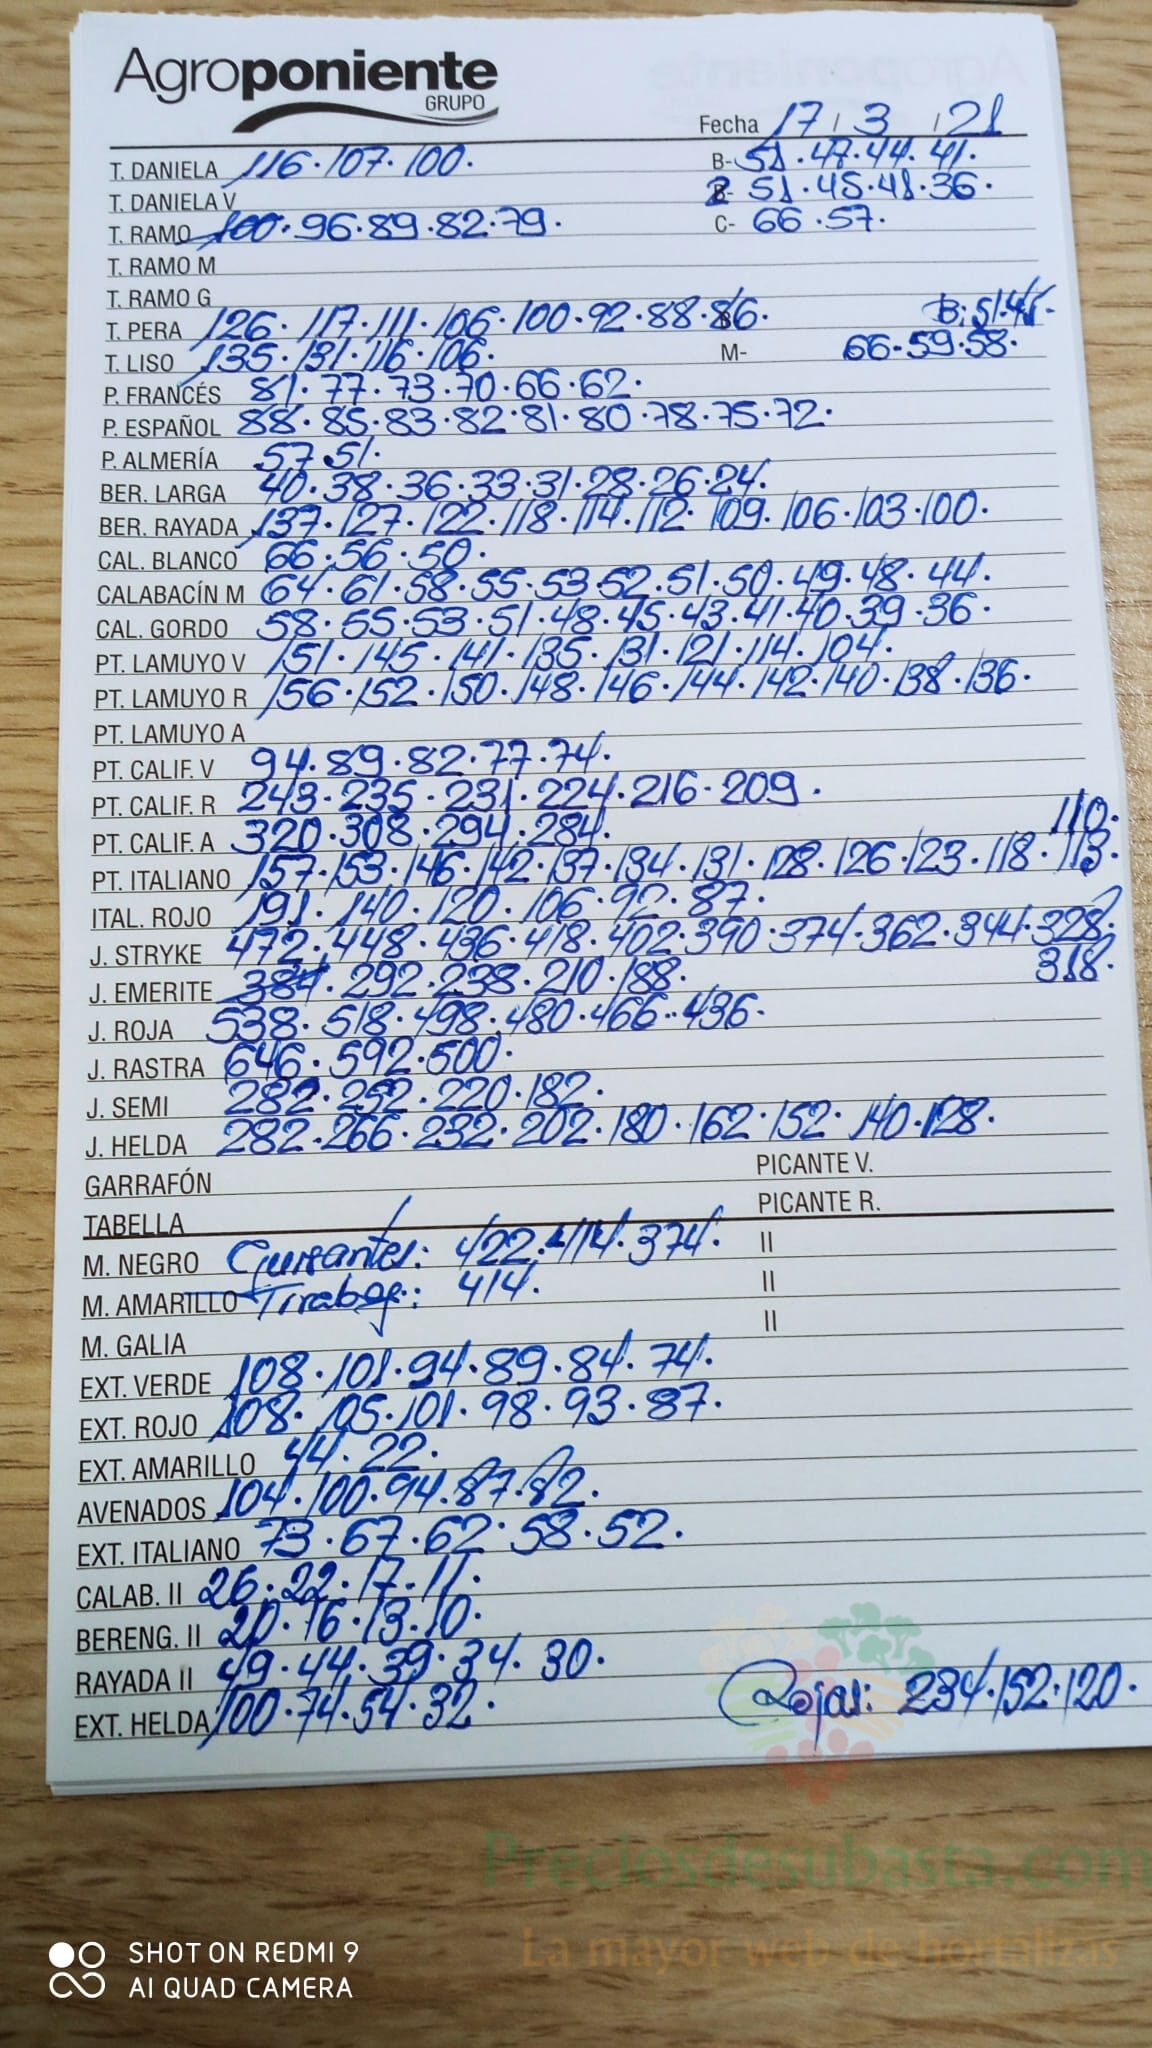 Agroponiente
GRUPO
Fecha 17 / 3 / 21
T. DANELA 116.107.100. B- 51.47.44.41.
T. DANIELA V 2 51.45.41.36.
T. RAMO 100.96.89.82.79. C- 66.57.
T. RAMO M
T. RAMO G
T. PERA 126.117.111.106.100.92.88.86. B: 51.45.
T. LISO 135.131.116.106. M- 66.59.58.
P. FRANCÉS 81.77.73.70.66.62.
P. ESPAÑOL 88.85.83.82.81.80.78.75.72.
P. ALMERÍA 57.51.
BER. LARGA 40.38.36.33.31.28.26.24.
BER. RAYADA 137.127.122.118.114.112.109.106.103.100.
CAL. BLANCO 66.56.50.
CALABACÍN M 64.61.58.55.53.52.51.50.49.48.44.
CAL. GORDO 58.55.53.51.48.45.43.41.40.39.36.
PT. LAMUYO V 151.145.141.135.131.121.114.104.
PT. LAMUYO R 156.152.150.148.146.144.142.140.138.136.
PT. LAMUYO A
PT. CALIF. V 94.89.82.77.74.
PT. CALIF. R 243.235.231.224.216.209.
PT. CALIF. A 320.308.294.284. 110.
PT. ITALIANO 157.153.146.142.137.134.131.128.126.123.118.113.
ITAL. ROJO 191.140.120.106.92.87.
J. STRYKE 472.448.436.418.402.390.374.362.344.328.
J. EMERITE 384.292.238.210.188. 318.
J. ROJA 538.518.498.480.466.436.
J. RASTRA 646.592.500.
J. SEMI 282.252.220.182.
J. HELDA 282.266.232.202.180.162.152.140.128.
GARRAFÓN PICANTE V.
TABELLA PICANTE R.
M. NEGRO Guisantes: 422.414.374. II
M. AMARILLO Tirabeq.: 414. II
M. GALIA II
EXT. VERDE 108.101.94.89.84.74.
EXT. ROJO 108.105.101.98.93.87.
EXT. AMARILLO 44.22.
AVENADOS 104.100.94.87.82.
EXT. ITALIANO 73.67.62.58.52.
CALAB. II 26.22.17.11.
BERENG. II 20.16.13.10.
RAYADA II 49.44.39.34.30.
EXT. HELDA 100.74.54.32. Rojas: 234.152.120.
Preciosdesubasta.com
La mayor web de hortalizas
SHOT ON REDMI 9
AI QUAD CAMERA